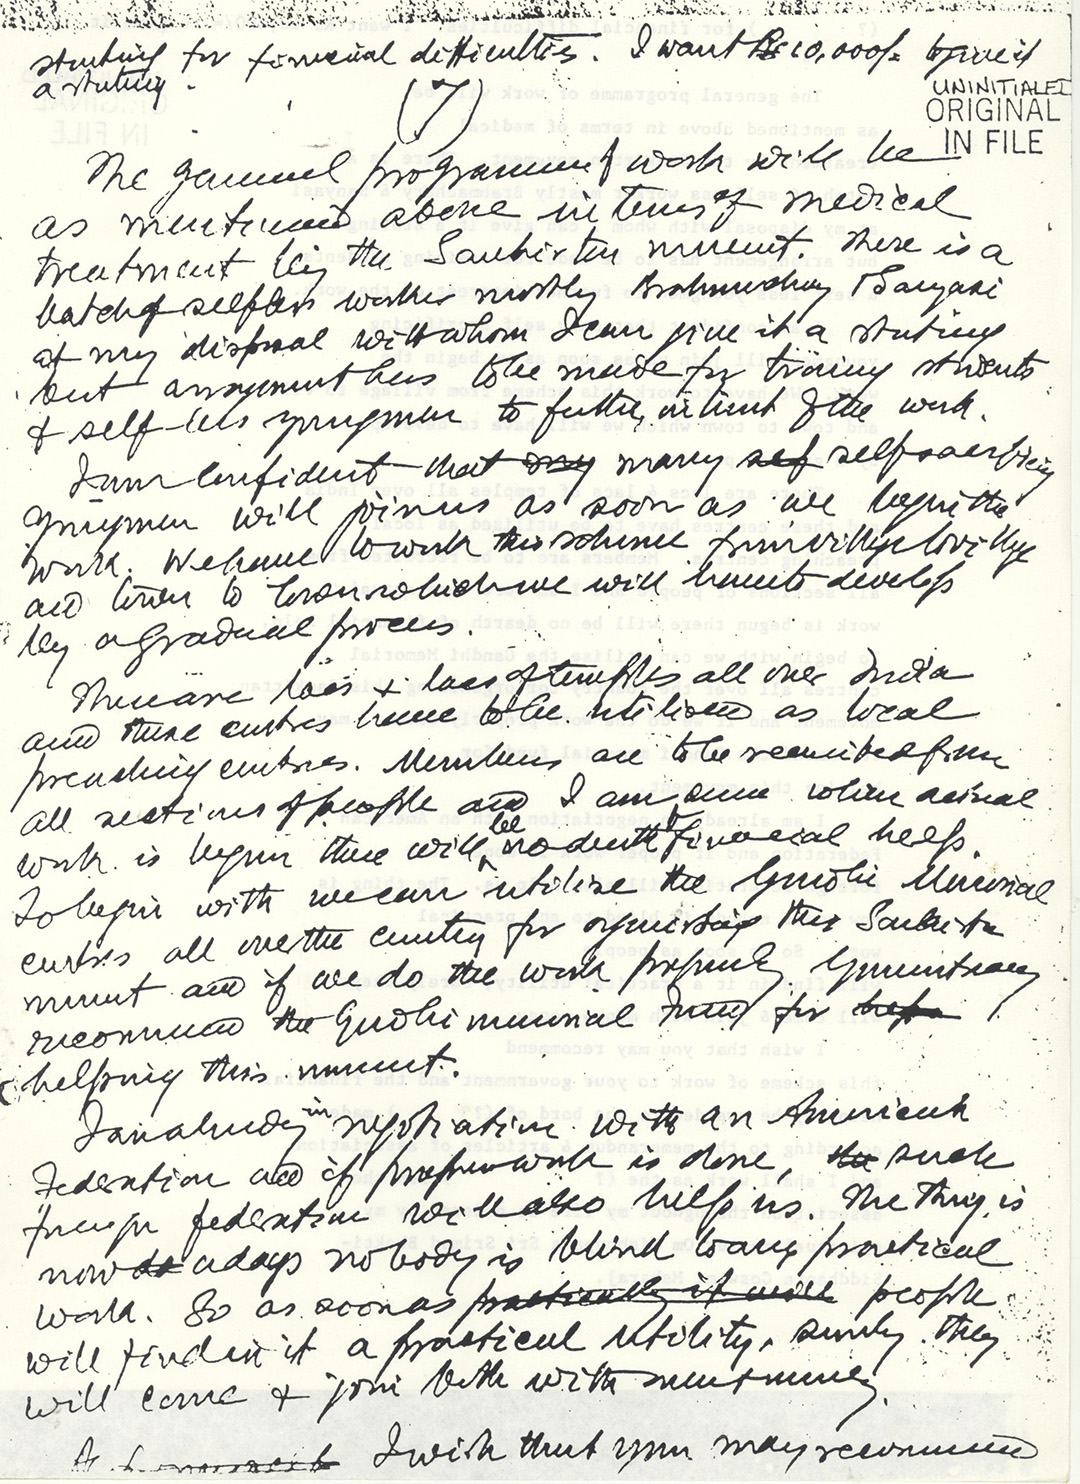 starting for financial difficulties. I want Rs 10,000/- to give it
a starting.
(7)
UNINITIALED
ORIGINAL
IN FILE
The general programme of work will be
as mentioned above in terms of medical
treatment by the Sankirtan movement. There is a
batch of selfless worker mostly Brahmachary & Sanyasi
at my disposal with whom I can give it a starting
but arrangement has to be made for training students
& self-less youngmen to further interest of the work.
I am confident that any many self self-sacrificing
youngmen will join us as soon as we begin the
work. We have to work this scheme from village to village
and town to town which we will have to develop
by a gradual process.
There are lacs & lacs of temples all over India
and these centres have to be utilised as local
preaching centres. Members are to be recruited from
all sections of people and I am sure when actual
work is begun there will be no dearth of financial help.
To begin with we can utilize the Gandhi Memorial
centres all over the country for organising this Sankirtan
movement and if we do the work properly Government may
recommend the Gandhi memorial fund for help
helping this movement.
I am already in negotiation with an American
Federation and if proper work is done, the such
foreign federation will also help us. The thing is
now da adays nobody is blind to any practical
work. So as soon as practically it will people
will find in it a practical utility, surely they
will come & join both with men & money.
I wish that you may recommend